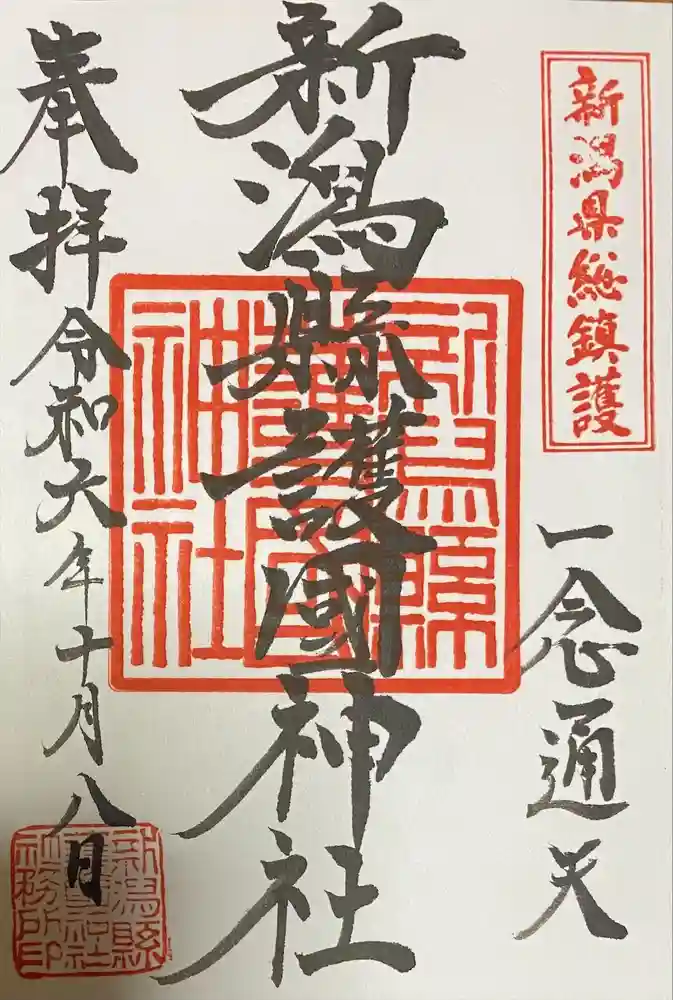 新潟県総鎮護
一念通天
新潟縣護國神社
新潟縣護國神社
奉拝 令和六年十月八日
新潟縣護國神社社務所印